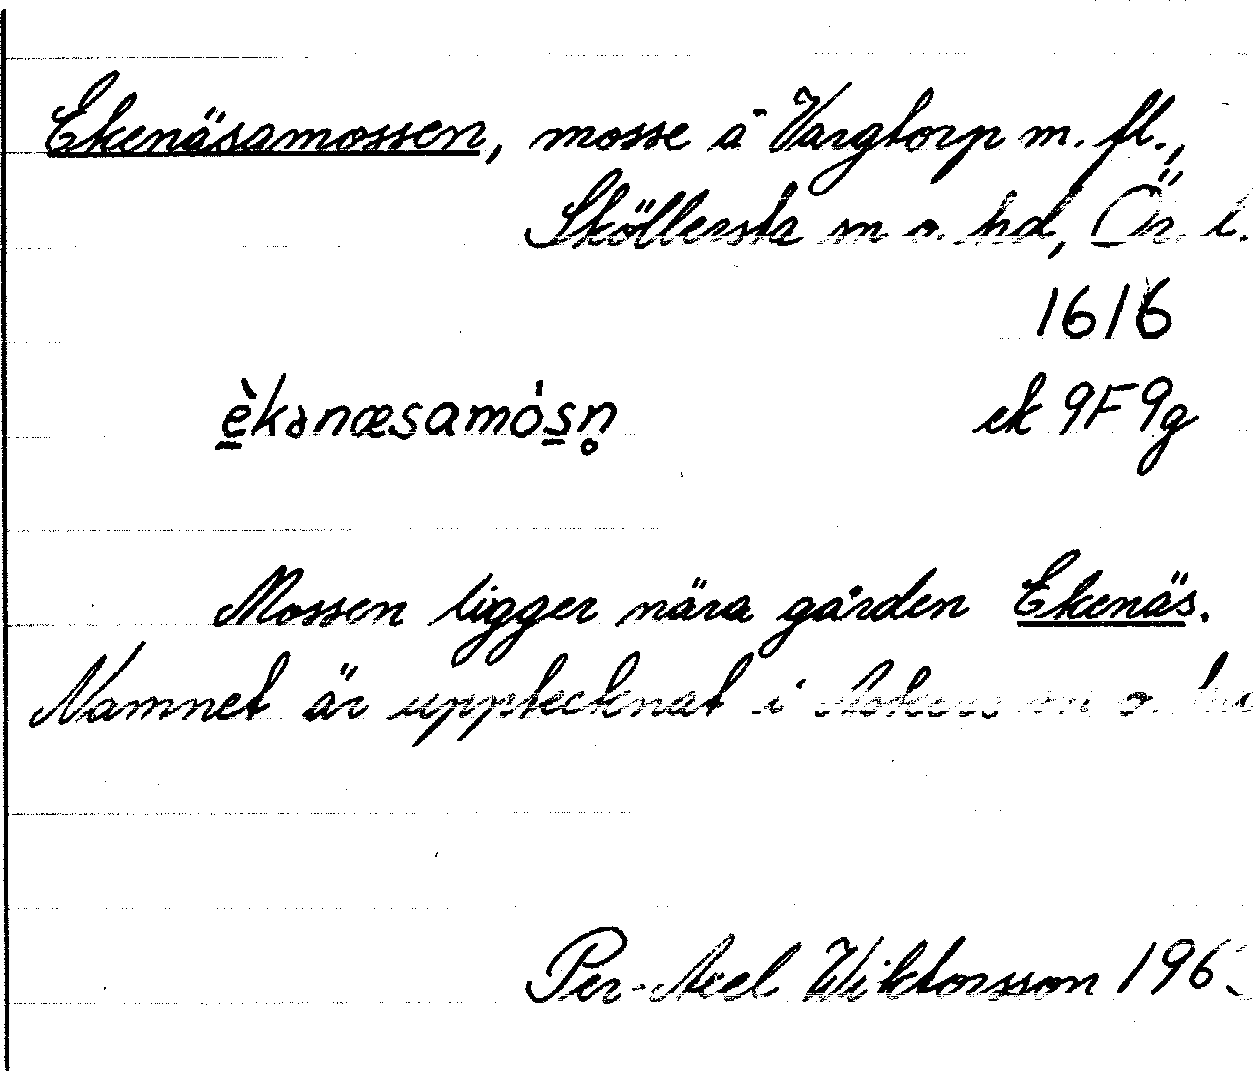 Ekenäsamossen, mosse å Vargtorp m. fl.,
Sköllersta sn o. hd, Ör. l.
1616
è̱kənæsamȯs̱n̥ ek 9F9g
Mossen ligger nära gården Ekenäs.
Namnet är upptecknat i Askers sn o. hd
Per-Axel Wiktorsson 196